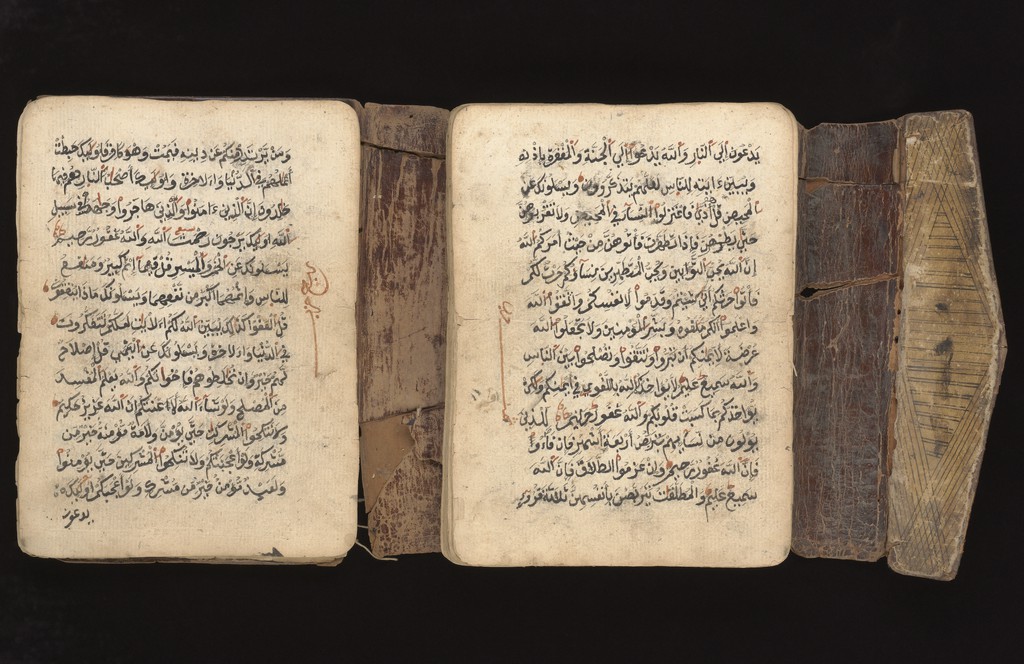 ومن يرتدد منكم عن دينه فيمت وهو كافر فاولئك حبطت
اعملهم في الدنيا والاخرة واولئك اصحاب النار هم فيها
خلدون ان الذين ءامنوا والذين هاجروا وجهدوا في سبيل
الله اولئك يرجون رحمت الله والله غفور رحيم
يسئلونك عن الخمر والميسر قل فيهما اثم كبير ومنفع
للناس واثمهما اكبر من نفعهما ويسئلونك ماذا ينفقون
قل العفو كذلك يبين الله لكم الايت لعلكم تتفكرون
في الدنيا والاخرة ويسئلونك عن اليتمى قل اصلاح
لهم خير وان تخالطوهم فاخوانكم والله يعلم المفسد
من المصلح ولو شاء الله لاعنتكم ان الله عزيز حكيم
ولا تنكحوا المشركت حتى يؤمن ولامة مؤمنة خير من
مشركة ولو اعجبتكم ولا تنكحوا المشركين حتى يؤمنوا
ولعبد مؤمن خير من مشرك ولو اعجبكم اولئك
يدعون
يدعون الى النار والله يدعوا الى الجنة والمغفرة باذنه
ويبين ءايته للناس لعلهم يتذكرون ويسئلونك عن
المحيض قل هو اذى فاعتزلوا النساء في المحيض ولا تقربوهن
حتى يطهرن فاذا تطهرن فاتوهن من حيث امركم الله
ان الله يحب التوابين ويحب المتطهرين نساؤكم حرث لكم
فاتوا حرثكم انى شئتم وقدموا لانفسكم واتقوا الله
واعلموا انكم ملقوه وبشر المؤمنين ولا تجعلوا الله
عرضة لايمنكم ان تبروا وتتقوا وتصلحوا بين الناس
والله سميع عليم لا يؤاخذكم الله باللغو في ايمنكم ولكن
يؤاخذكم بما كسبت قلوبكم والله غفور حليم للذين
يؤلون من نسائهم تربص اربعة اشهر فان فاءو
فان الله غفور رحيم وان عزموا الطلاق فان الله
سميع عليم والمطلقت يتربصن بانفسهن ثلاثة قروء